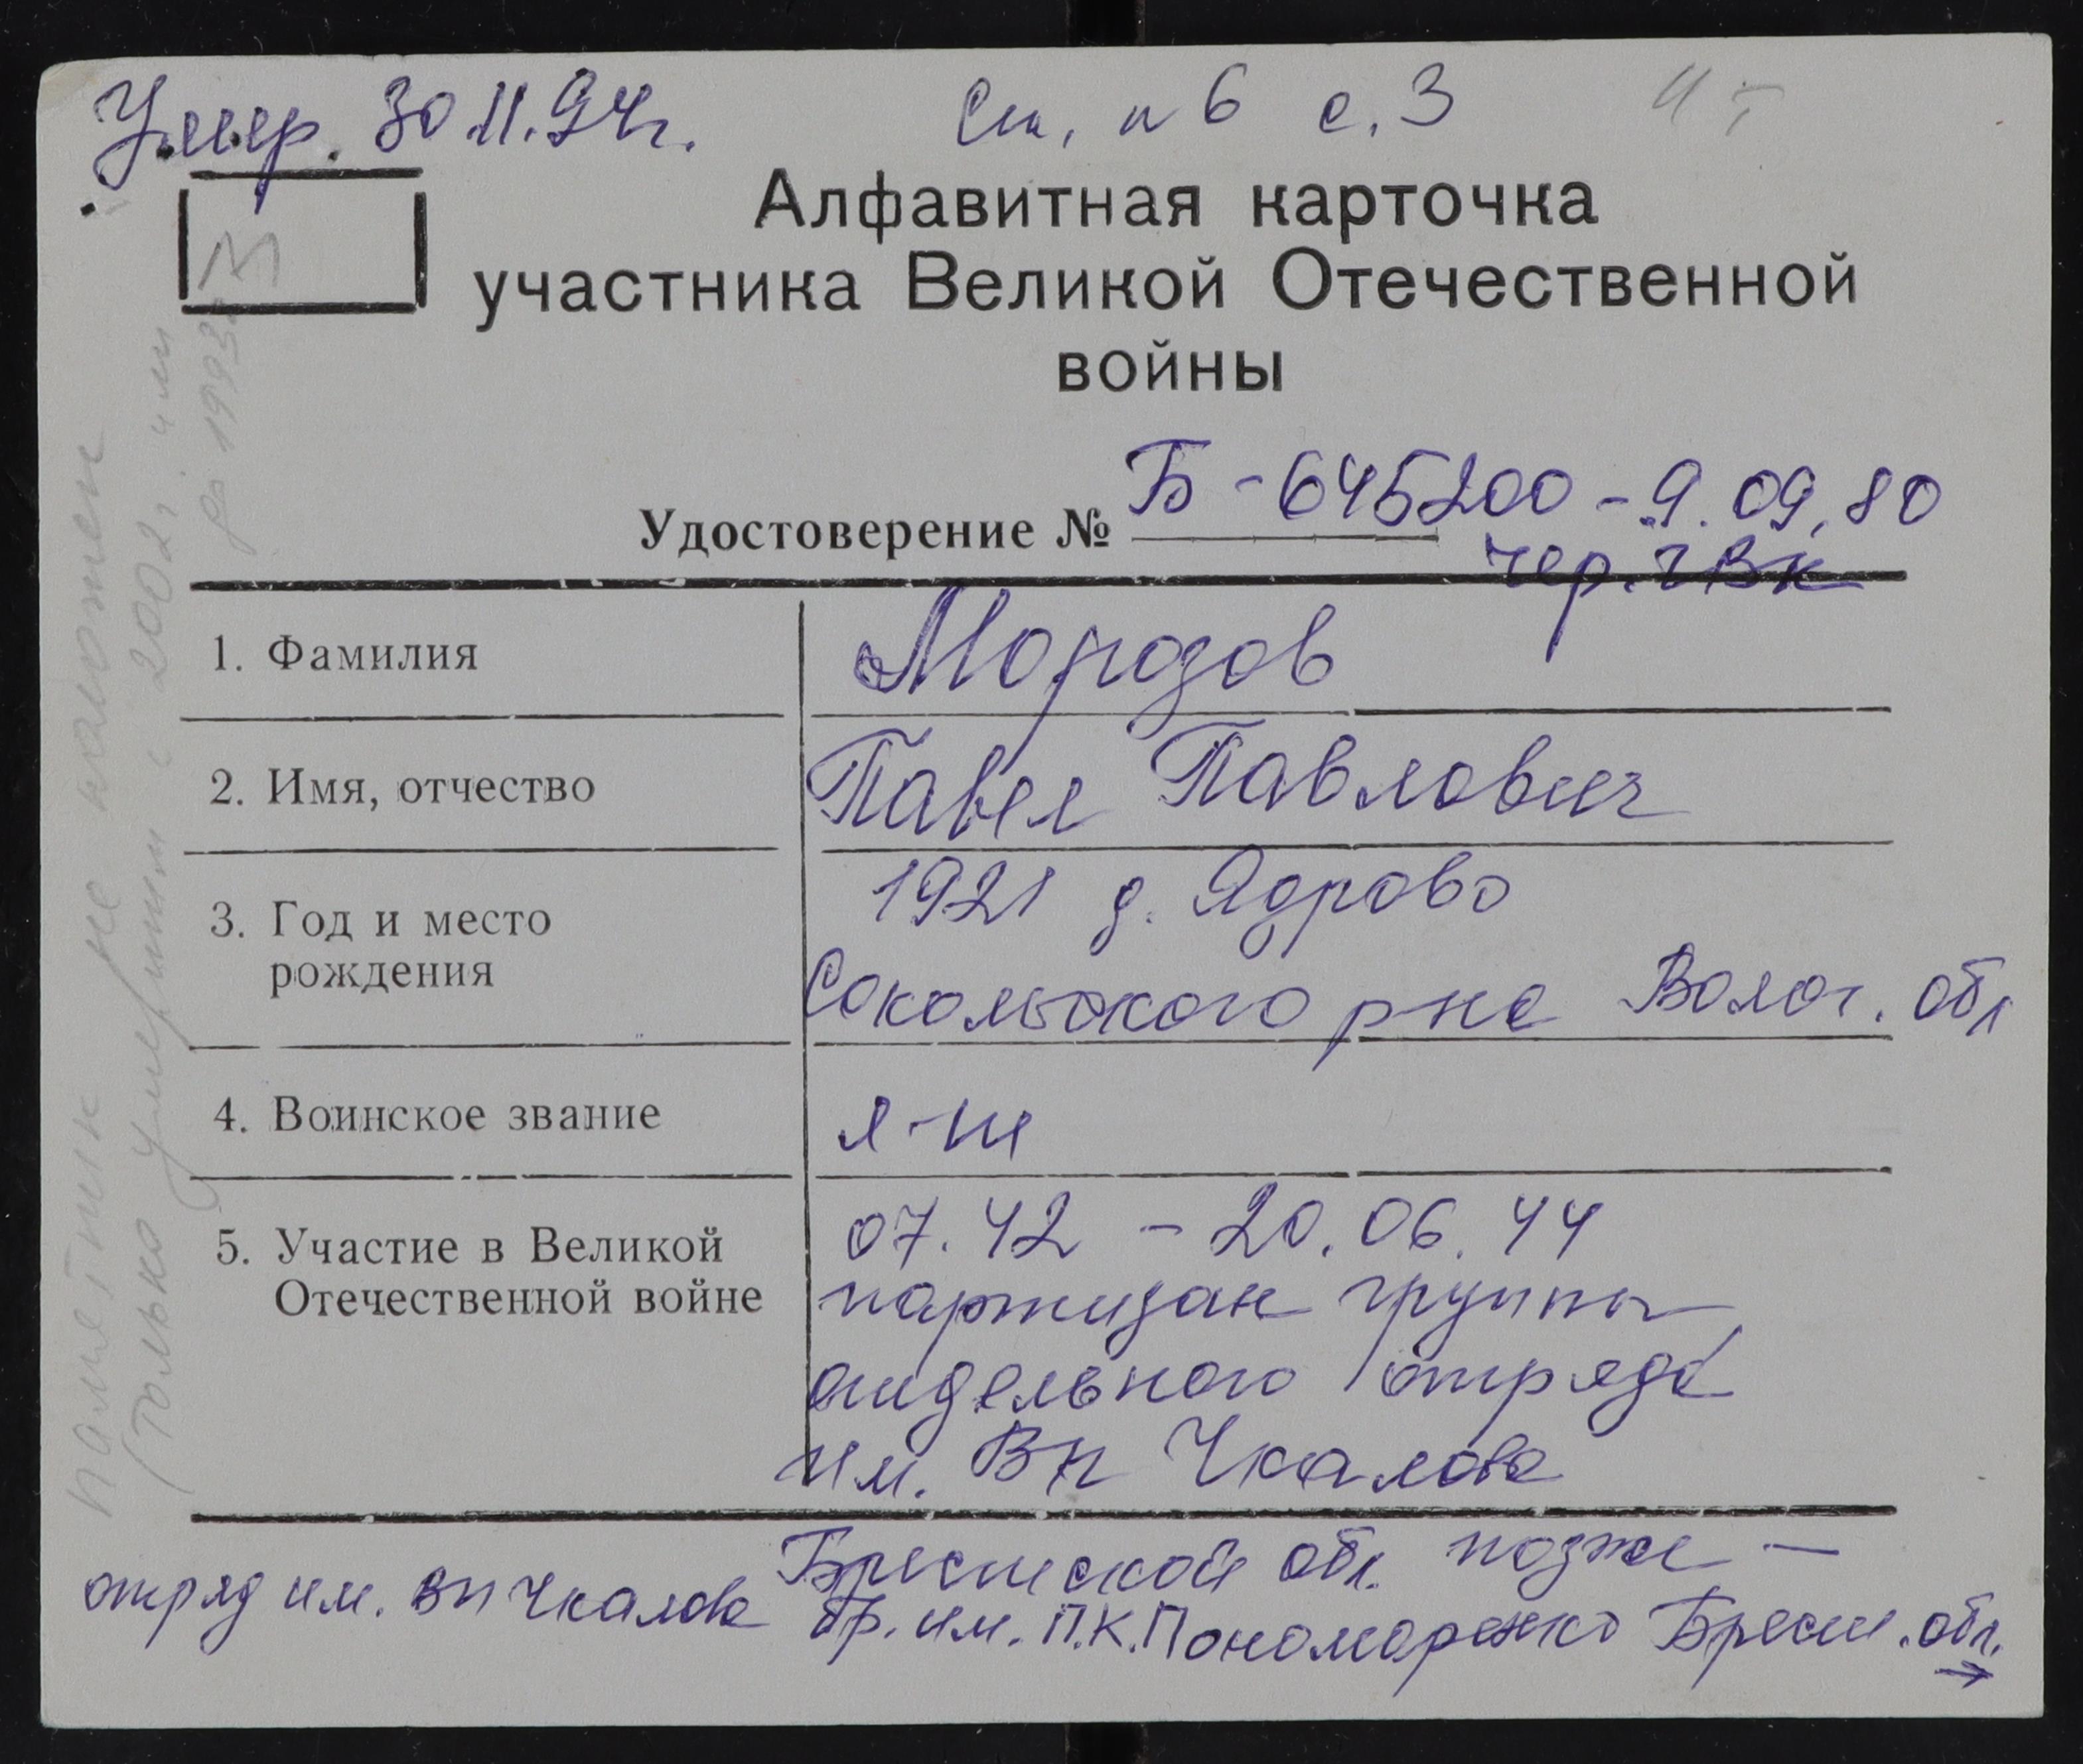 Умер. 30.11.94г.
См. п 6 с. 3
ЧТ
М
Алфавитная карточка
участника Великой Отечественной
войны
Удостоверение № Б - 645200 - 9.09.80
чер. ГВК
1. Фамилия Морозов
2. Имя, отчество Павел Павлович
3. Год и место 1921 д. Ядрово
рождения Сокольского р-на Волог. обл
4. Воинское звание л-т
5. Участие в Великой 07.42 - 20.06.44
Отечественной войне партизан группы
отдельного отряда
им. ВП Чкалова
Брестской обл. позже —
отряд им. ВП Чкалова бр. им. П.К. Пономаренко Брест. обл. →
памятник не положен
(только умершим с 2002, или
до 1993